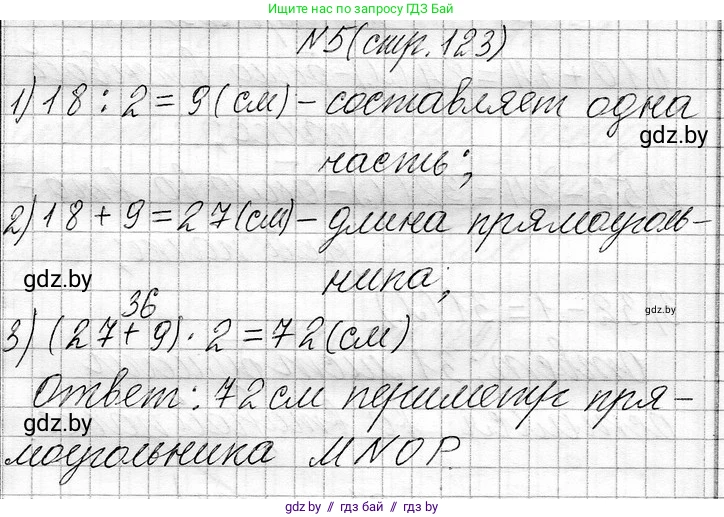 Ищите нас в поиске по запросу ГДЗ Бай
N5(стр. 123)
1) 18 : 2 = 9 (см) - составляет одна
gdz.by
часть;
2) 18 + 9 = 27 (см) - длина прямоуголь-
gdz.by
ника;
36
gdz.by
3) (27 + 9) · 2 = 72 (см)
Ответ: 72 см периметр пря-
gdz.by
моугольника MNOP.
gdz.by // гдз бай // гдз by